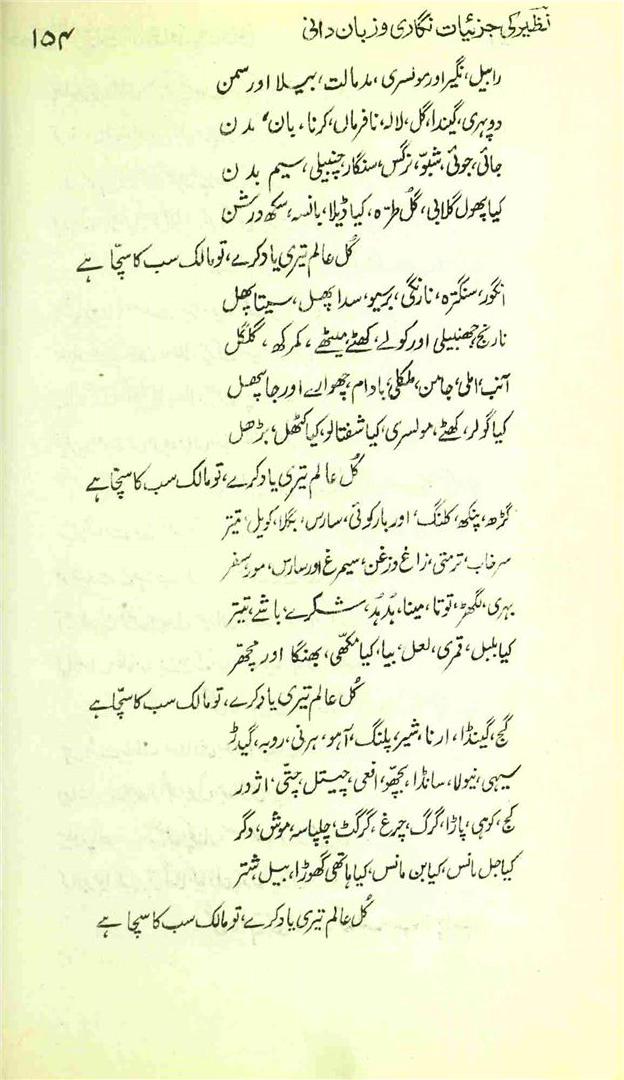 نظیر کی جزئیات نگاری و زبان دانی ۱۵۴
رابیل، نگیر اور مونسری، مدمالت، بیلا اور سمن
دوپہری، گیندا، گل، لالہ، نافرماں، کرنا، بان، مدن
جائی، جوئی، شبّو، نرگس، سنگار، چنبیلی، سیم بدن
کیا پھول گلابی، گل طرہ، کیا ڈیلا، بانسہ، سکھ درشن
کُل عالم تیری یاد کرے، تو مالک سب کا سچّا ہے
انگور، سنگترہ، نارنگی، بریو، سدا پھل، سیتا پھل
نارنج، جھنبیلی اور کولے، کھٹے، میٹھے، کمرکھ، گلگل
آنب، املی، جامن، بادام، چھوارے اور جا پھل
کیا گولر، کھٹے، مولسری، کیا شفتالو، کیا کٹھل، بڑھل
کُل عالم تیری یاد کرے، تو مالک سب کا سچّا ہے
گڑھ، پنکھ، کلنگ، اور بارکوئی، سارس، بگلا، کویل، تیتر
سرخاب، ترمتی، زاغ و زغن، سیمرغ اور سارس، مور سفر
بہری، لگھڑ، توتا، مینا، ہدہد، شکرے، باشے، تیتر
کیا بلبل، قمری، لعل، بیا، کیا مکھی، بھنگا اور مچھر
کُل عالم تیری یاد کرے، تو مالک سب کا سچّا ہے
گج، گینڈا، ارنا، شیر، پلنگ، آہو، ہرنی، روبہ، گیدڑ
سیہی، نیولا، سانڈا، بچھو، افعی، چیتل، چتی، اژدر
کج، کوہی، پاڑا، گرگ، چرغ، گرگٹ، چلپاسہ، موش، دگر
کیا جل مانس، کیا بن مانس، کیا ہاتھی گھوڑا، بیل، شتر
کُل عالم تیری یاد کرے، تو مالک سب کا سچا ہے